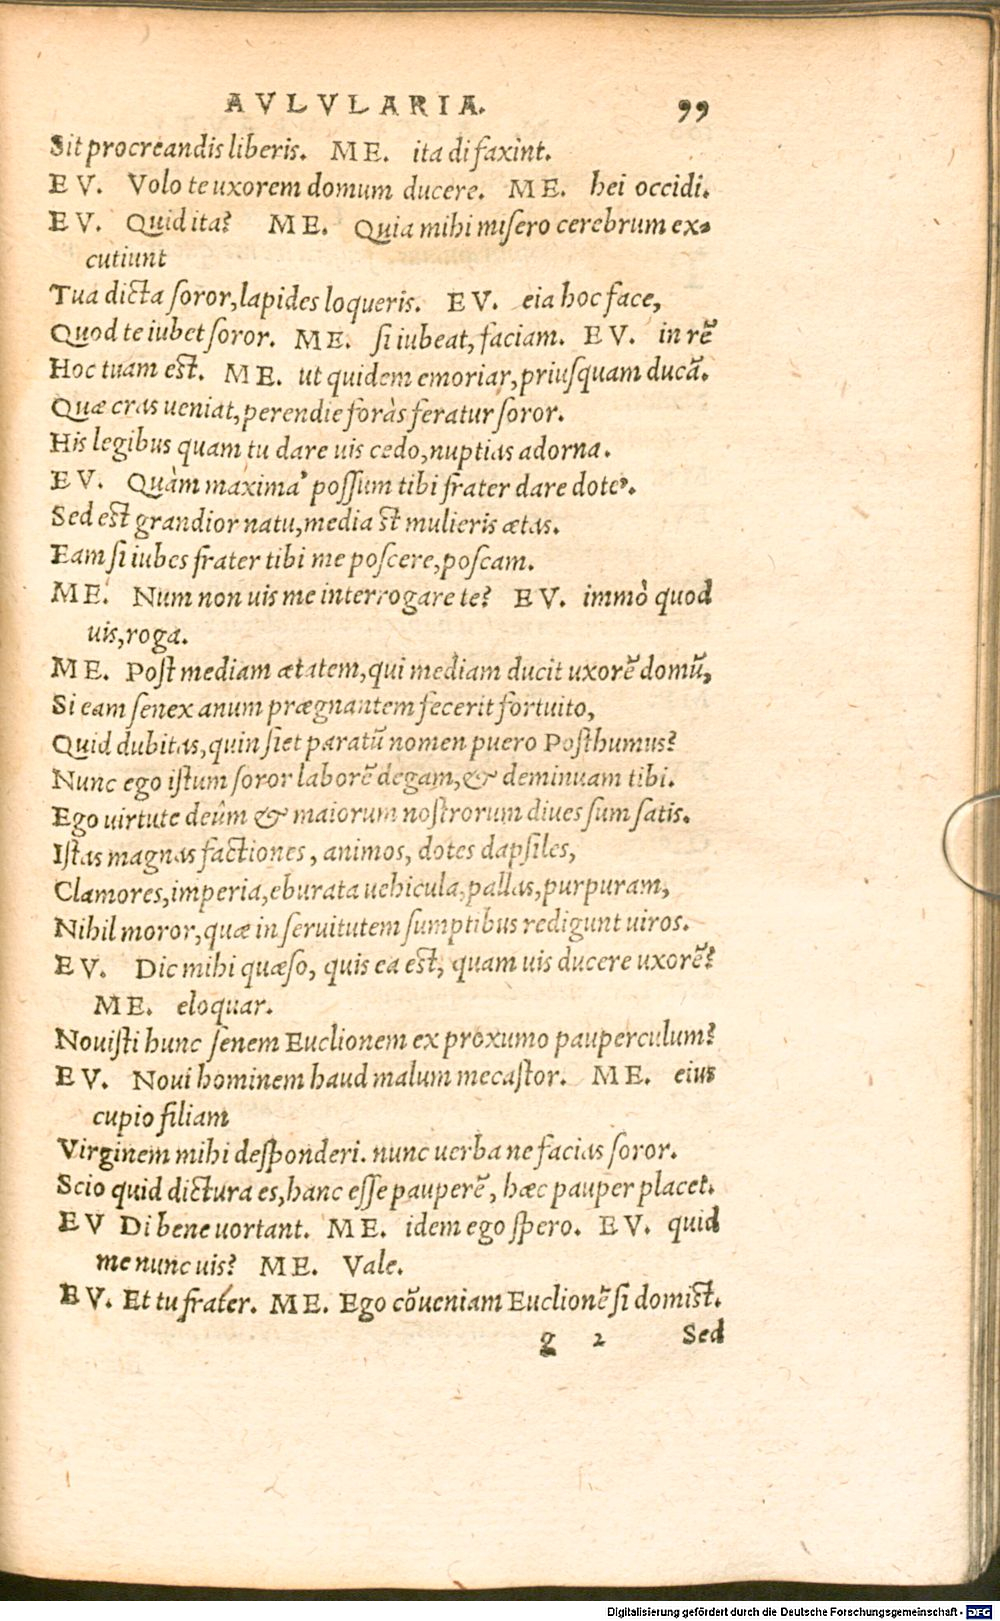 AVLVLARIA. 99
Sit procreandis liberis. ME. ita di faxint.
EV. Volo te uxorem domum ducere. ME. hei occidi.
EV. Quid ita? ME. Quia mihi misero cerebrum ex-
cutiunt
Tua dicta soror, lapides loqueris. EV. eia hoc face,
Quod te iubet soror. ME. si iubeat, faciam. EV. in rē
Hoc tuam est. ME. ut quidem emoriar, priusquam ducā.
Quæ cras ueniat, perendie foràs feratur soror.
His legibus quam tu dare uis cedo, nuptias adorna.
EV. Quàm maxima’ possum tibi frater dare dote’.
Sed est grandior natu, media st mulieris ætas.
Eam si iubes frater tibi me poscere, poscam.
ME. Num non uis me interrogare te? EV. immò quod
uis, roga.
ME. Post mediam ætatem, qui mediam ducit uxorē domū,
Si eam senex anum prægnantem fecerit fortuito,
Quid dubitas, quin siet paratū nomen puero Posthumus?
Nunc ego istum soror laborē degam, & deminuam tibi.
Ego uirtute deûm & maiorum nostrorum diues sum satis.
Istas magnas factiones, animos, dotes dapsiles,
Clamores, imperia, eburata uehicula, pallas, purpuram,
Nihil moror, quæ in seruitutem sumptibus redigunt uiros.
EV. Dic mihi quæso, quis ea est, quam uis ducere uxorē?
ME. eloquar.
Nouisti hunc senem Euclionem ex proxumo pauperculum?
EV. Noui hominem haud malum mecastor. ME. eius
cupio filiam
Virginem mihi desponderi. nunc uerba ne facias soror.
Scio quid dictura es, hanc esse pauperē, hæc pauper placet.
EV Di bene uortant. ME. idem ego spero. EV. quid
me nunc uis? ME. Vale.
EV. Et tu frater. ME. Ego cōueniam Euclionē si domist.
g 2 Sed
Digitalisierung gefördert durch die Deutsche Forschungsgemeinschaft - DFG